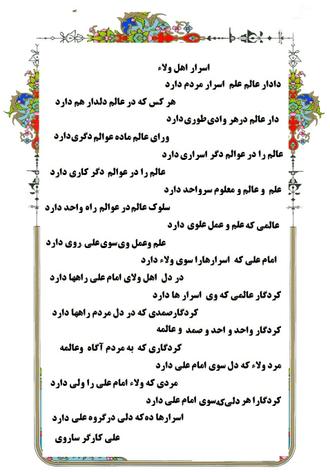 اسرار اهل ولاء
دادار عالم علم اسرار مردم دارد
هر کس که در عالم دلدار هم دارد
دار عالم درهر وادی طوری دارد
ورای عالم ماده عوالم دگری دارد
عالم را در عوالم دگر اسراری دارد
عالم را در عوالم دگر کاری دارد
علم و عالم و معلوم سرواحد دارد
سلوک عالم در عوالم راه واحد دارد
عالمی که علم و عمل علوی دارد
علم وعمل وی سوی علی روی دارد
امام علی که اسرارهارا سوی ولاء دارد
در دل اهل ولای امام علی راهها دارد
کردگار عالمی که وی اسرار ها دارد
کردگارصمدی که در دل مردم راهها دارد
کردگار واحد و احد و صمد و عالمه
کردگاری که به مردم آگاه وعالمه
مرد ولاء که دل سوی امام علی دارد
مردی که ولاء امام علی را ولی دارد
کردگارا هر دلی که سوی امام علی دارد
اسرارها ده که دلی درگروه علی دارد
علی کارگر ساروی